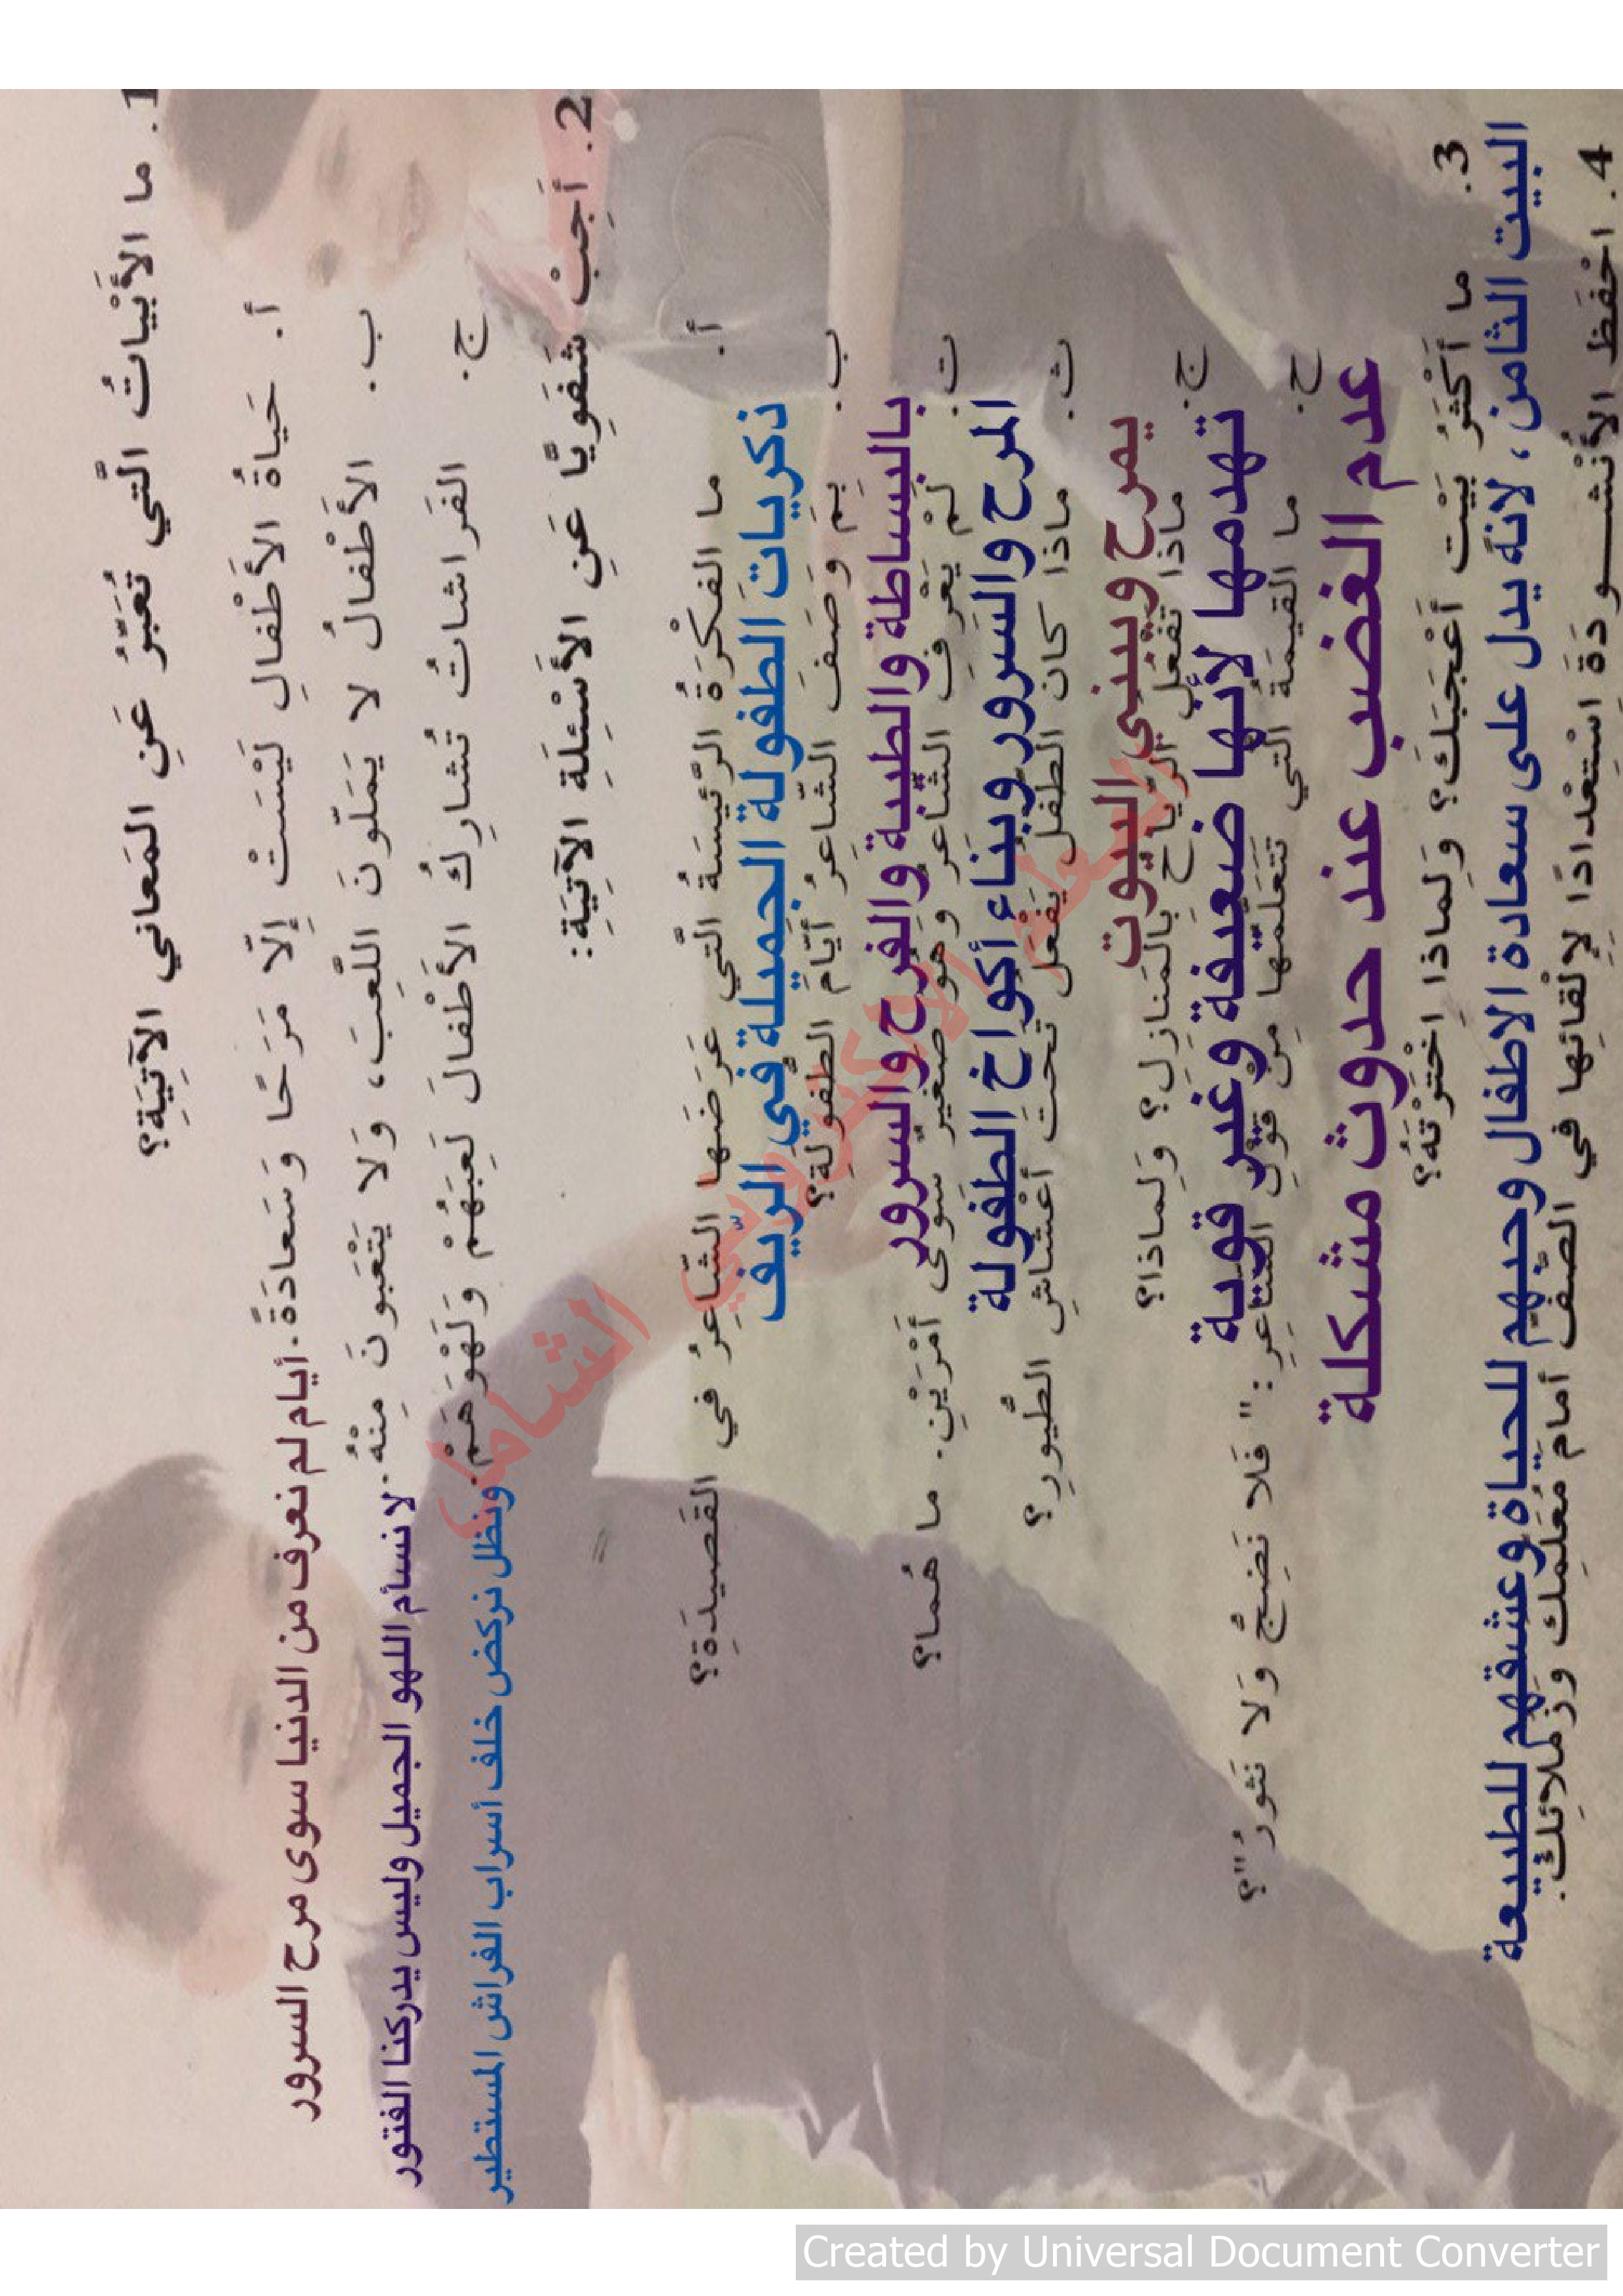 1. ما الأَبْياتُ الَّتي تُعَبِّرُ عَنِ المَعاني الآتِيَةِ؟
أ. حَياةُ الأَطْفالِ لَيْسَتْ إِلّا مَرَحًا وَسَعادَةً. أيام لم نعرف من الدنيا سوى مرح السرور
ب. الأَطْفالُ لا يَمَلّونَ اللَّعِبَ، وَلا يَتْعَبونَ مِنْهُ. لا نسأم اللهو الجميل وليس يدركنا الفتور
ج. الفَراشاتُ تُشارِكُ الأَطْفالَ لَعِبَهُمْ وَلَهْوَهُمْ. ونظل نركض خلف أسراب الفراش المستطير
2. أَجِبْ شَفَوِيًّا عَنِ الأَسْئِلَةِ الآتِيَةِ:
أ. ما الفِكْرَةُ الرَّئيسَةُ الَّتي عَرَضَها الشّاعِرُ في القَصيدَةِ؟
ذكريات الطفولة الجميلة في الريف
ب. بِمَ وَصَفَ الشّاعِرُ أَيّامَ الطُّفولَةِ؟
بالبساطة والطيبة والفرح والسرور
ت. لَمْ يَعْرِفِ الشّاعِرُ وَهُوَ صَغيرٌ سِوى أَمْرَيْنِ. ما هُما؟
المرح والسرور وبناء أكواخ الطفولة
ث. ماذا كانَ الطِّفْلُ يَفْعَلُ تَحْتَ أَعْشاشِ الطُّيورِ؟
يمرح ويبني البيوت
ج. ماذا تَفْعَلُ الرِّياحُ بِالمَنازِلِ؟ وَلِماذا؟
تهدمها لأنها ضعيفة وغير قوية
ح. ما القيمَةُ الَّتي تَتَعَلَّمُها مِنْ قَوْلِ الشّاعِرِ: "فَلا نَضِجُّ وَلا نَثورُ"؟
عدم الغضب عند حدوث مشكلة
3. ما أَكْثَرُ بَيْتٍ أَعْجَبَكَ؟ وَلِماذا اخْتَرْتَهُ؟
البيت الثامن، لانه يدل على سعادة الاطفال وحبهم للحياة وعشقهم للطبيعة
4. احْفَظِ الأُنْشـــودَةَ اسْتِعْدادًا لِإِلْقائِها في الصَّفِّ أَمامَ مُعَلِّمِكَ وَزُمَلائِكَ.
الشامل
Created by Universal Document Converter